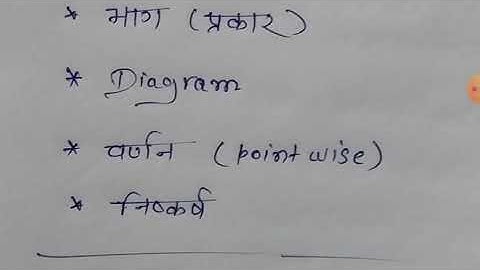 * भाग (प्रकार)
* Diagram
* वर्णन (point wise)
* निष्कर्ष